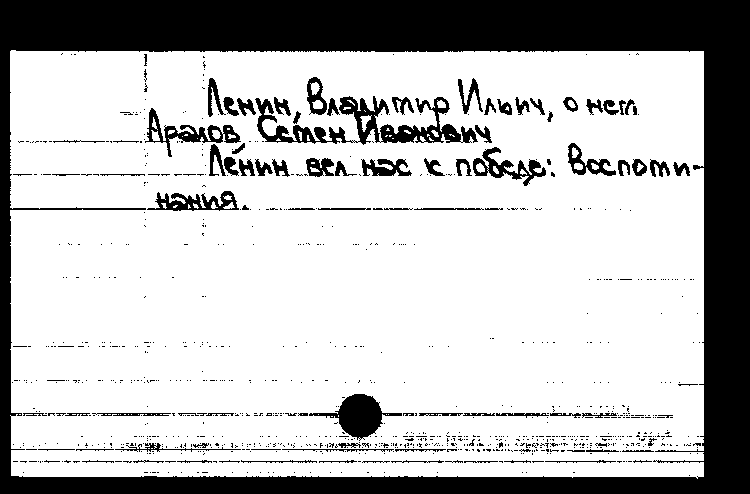 Ленин, Владимир Ильич, о нем
Аралов Семен Иванович
Ленин вел нас к победе: Воспоми-
нания.